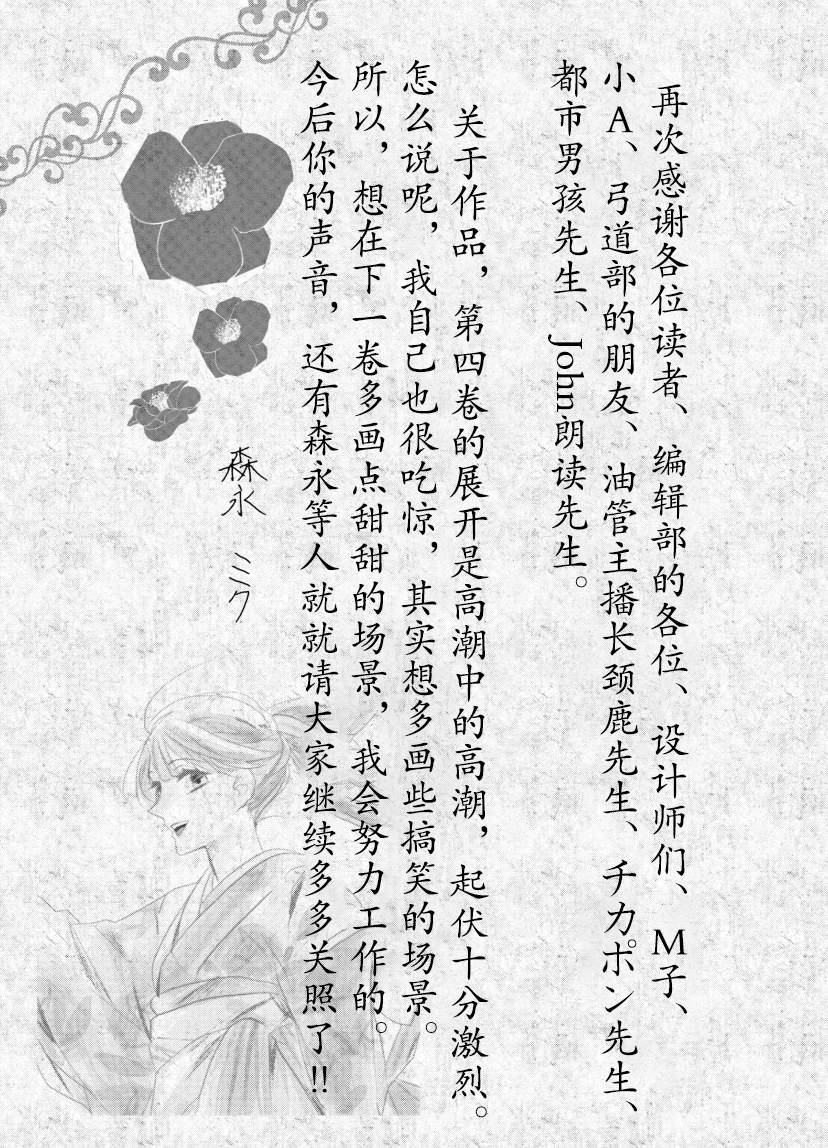 再次感谢各位读者、编辑部的各位、设计师们、M子、
小A、弓道部的朋友、油管主播长颈鹿先生、チカポン先生、
都市男孩先生、John朗读先生。
关于作品，第四卷的展开是高潮中的高潮，起伏十分激烈。
怎么说呢，我自己也很吃惊，其实想多画些搞笑的场景。
所以，想在下一卷多画点甜甜的场景，我会努力工作的。
今后你的声音，还有森永等人就就请大家继续多多关照了!!
森永 ミク